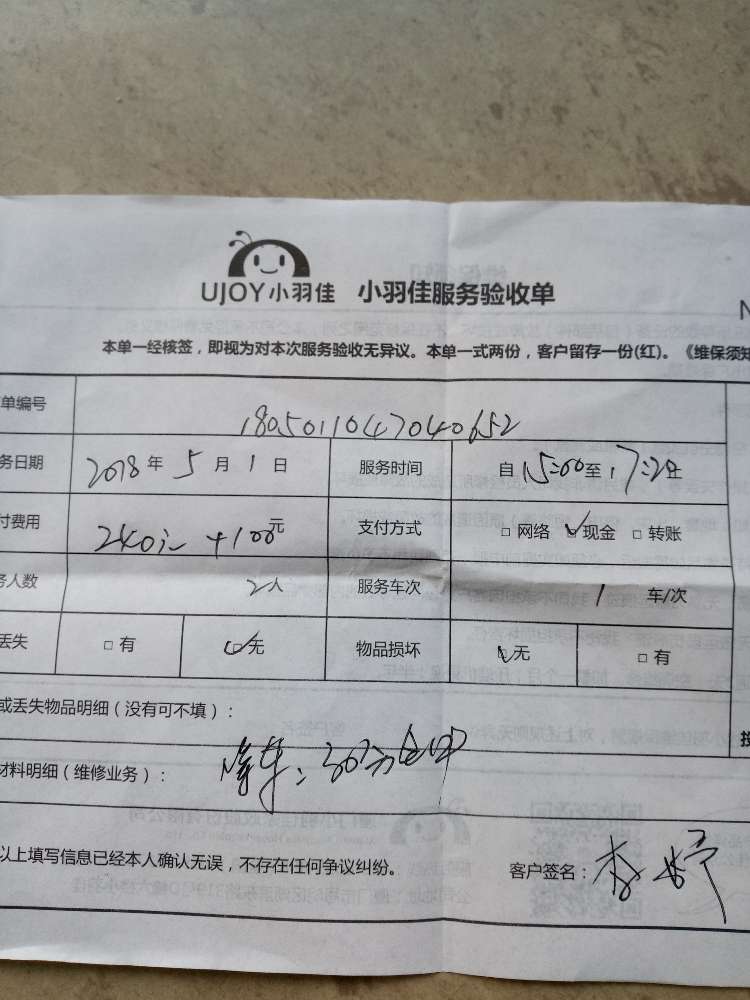 UJOY小羽佳 小羽佳服务验收单
N
本单一经核签，即视为对本次服务验收无异议。本单一式两份，客户留存一份(红)。《维保须知
单编号 1805011047040652
务日期 2018年5月1日 服务时间 自15:00至17:20
付费用 240元+100元 支付方式 □网络 ☑现金 □转账
务人数 2人 服务车次 1 车/次
丢失 □有 ☑无 物品损坏 ☑无 □有
或丢失物品明细（没有可不填）：
材料明细（维修业务）：
以上填写信息已经本人确认无误，不存在任何争议纠纷。 客户签名：李婷